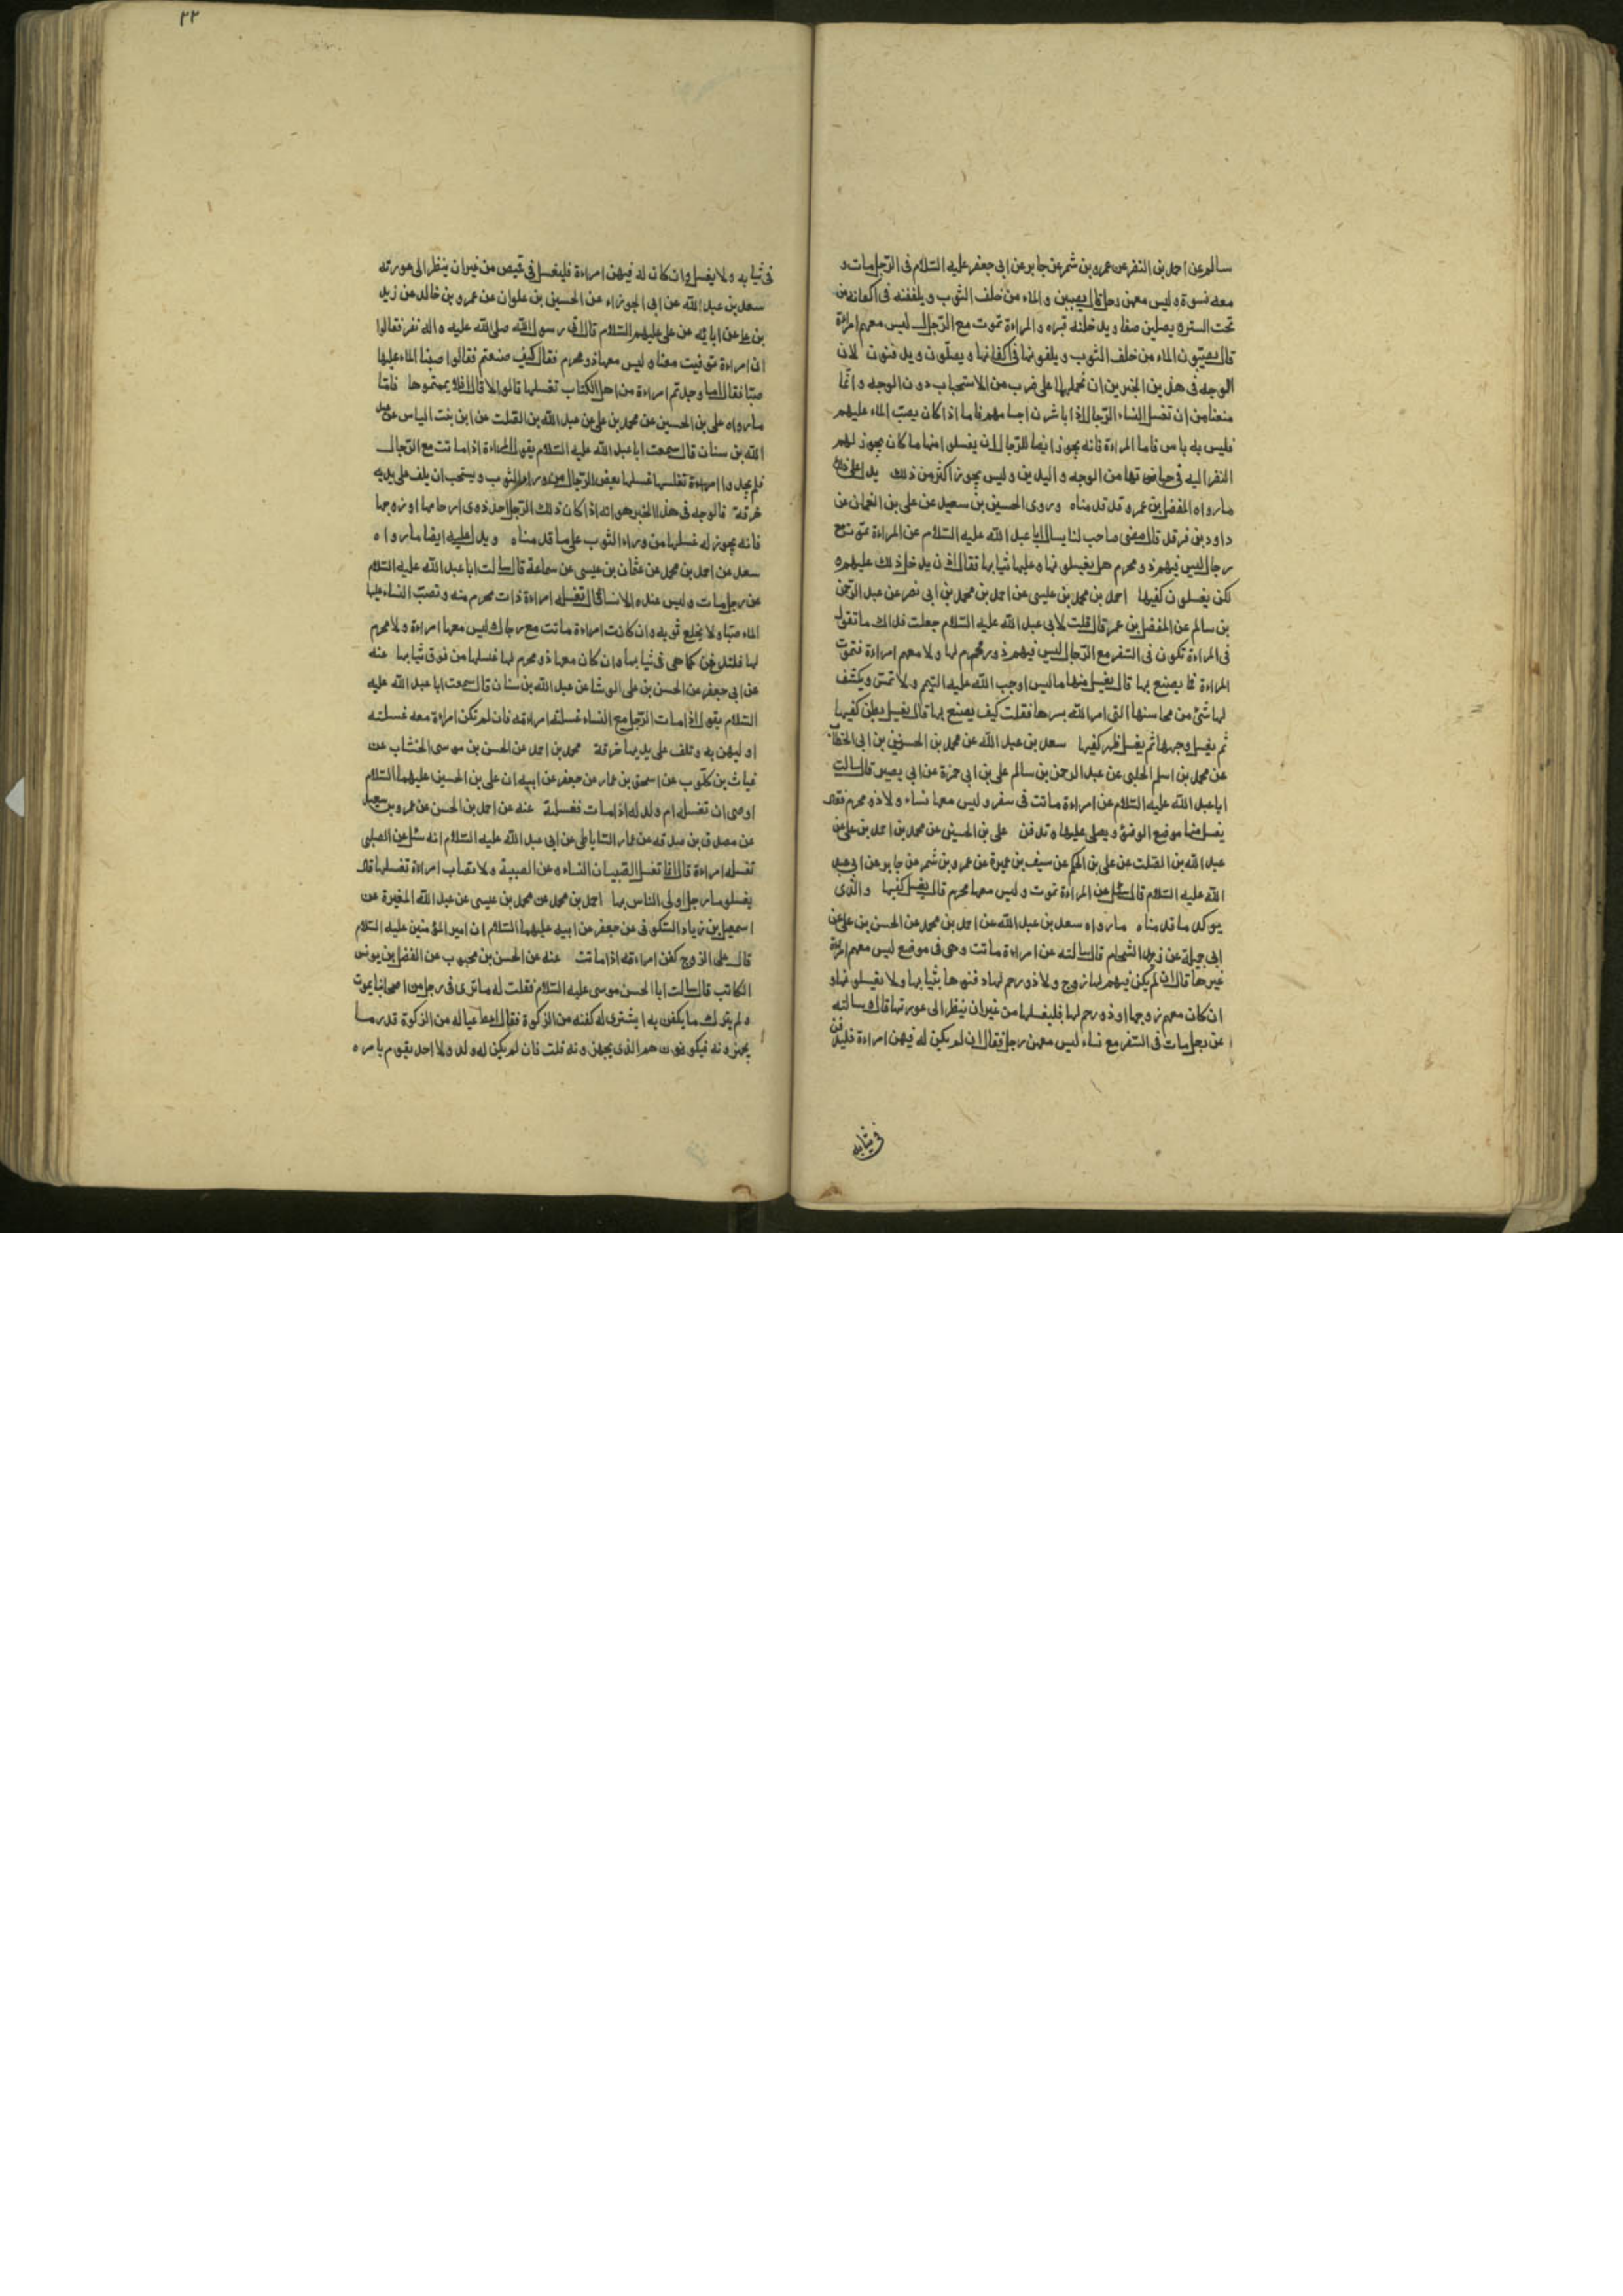 سالم عن احمد بن النضر عن عمرو بن شمر عن جابر عن ابى جعفر عليه السّلام فى الرّجل مات و
معه نسوة و ليس معهن رجل قال يصببن و الماء من خلف الثوب و يلففنه فى اكفانه من
تحت الستر و يصلين صفا و يدخلنه قبره و المراءة تموت مع الرّجال ليس معهم امراءة
قال يصبّون الماء من خلف الثوب و يلفونها فى اكفانها و يصلّون و يدفنون لان
الوجه فى هذين الخبرين ان نحملهما على ضرب من الاستحباب دون الوجه و انّما
منعنا من ان تغسل النساء الرّجال اذا باشرن اجسامهم فاما اذا كان يصبّ الماء عليهم
فليس به باس فاما المراءة فانه يجوز ايضا للرّجال ان يغسلوا منها ما كان يجوز لهم
النظر اليه فى حياتها من الوجه و اليدين و ليس يجوز اكثر من ذلك يدل على ذلك
ما رواه المفضل بن عمرو قد قدمناه و روى الحسين بن سعيد عن على بن النعمان عن
داود بن فرقد قال مضى صاحب لنا يسال ابا عبد الله عليه السّلام عن المراءة تموت مع
رجال ليس فيهم ذو محرم هل يغسلونها و عليها ثيابها فقال اذن يدخل ذلك عليهم و
لكن يغسلون كفيها احمد بن محمد بن عليسى عن احمد بن محمد بن ابى نصر عن عبد الرّحمن
بن سالم عن المفضل بن عمر قال قلت لابى عبد الله عليه السّلام جعلت فداك ما تقول
فى المراءة تكون فى السّفر مع الرّجال ليس فيهم ذو رحم محرم لها و لا معهم امراءة فتموت
المراءة فما يصنع بها قال يغسل منها ما ليس اوجب الله عليه التيمم و لا تمسّ و يكشف
لها شئ من محاسنها التى امر الله بسرها فقلت كيف يصنع بها قال يغسل بطن كفيها
ثم يغسل وجهها ثم يغسل ظهر كفيها سعد بن عبد الله عن محمد بن الحسين بن ابى الخطّاب
عن محمد بن اسلم الجلبى عن عبد الرحمن بن سالم على بن ابى حمزة عن ابى بصير قال سالت
ابا عبد الله عليه السّلام عن امراءة ماتت فى سفر و ليس معها نساء و لا ذو محرم فقال
يغسل منها موضع الوضوء و يصلى عليها و تدفن على بن الحسين عن محمد بن احمد بن على عن
عبد الله بن الصلت عن على بن الحكم عن سيف بن عميرة عن عمرو بن شمر عن جابر عن ابى عبد
الله عليه السّلام قال سئل عن المراءة تموت و ليس معها محرم قال يغسل كفيها و الّذى
يوكد ما قدمناه ما رواه سعد بن عبد الله عن احمد بن محمد عن الحسن بن على عن
ابى جميلة عن زيد الشحام قال سالته عن امراءة ماتت و هى فى موضع ليس معهم امراءة
غيرها قال ان لم يكن فيهم لها زوج و لا ذو رحم لها دفنوها بثيابها و لا يغسلونها و
ان كان معهم زوجها او ذو رحم لها فليغسلها من غير ان ينظر الى عورتها قال و سالته
عن رجل مات فى السّفر مع نساء ليس معهن رجل فقال ان لم يكن له فيهن امراءة فليدفن
فى ثيابه
٢٢
فى ثيابه و لا يغسل و ان كان له فيهن امراءة فليغسل فى قميص من غير ان ينظر الى عورته
سعد بن عبد الله عن ابى الجوزاء عن الحسين بن علوان عن عمرو بن خالد عن زيد
بن على عن ابائه عن على عليهم السّلام قال اتى رسول الله صلى الله عليه و اله نفر فقالوا
ان امراءة توفيت معنا و ليس معها ذو محرم فقال كيف صنعتم فقالوا صببنا الماء عليها
صبّا فقال اما وجدتم امراءة من اهل الكتاب تغسلها قالوا لا قال افلا يممتموها فامّا
ما رواه على بن الحسين عن محمد بن على عن عبد الله بن الصلت عن ابن بنت الياس عن عبد
الله بن سنان قال سمعت ابا عبد الله عليه السّلام يقول المراءة اذا ماتت مع الرّجال
فلم يجدوا امراءة تغسلها غسلها بعض الرّجال من وراء الثوب و يستحب ان يلف على يديه
خرقة فالوجه فى هذا الخبر هو انه اذا كان ذلك الرّجل احد ذوى ارحامها او زوجها
فانه يجوز له غسلها من وراء الثوب على ما قدمناه و يدل عليه ايضا ما رواه
سعد عن احمد بن محمد عن عثمان بن عيسى عن سماعة قال سالت ابا عبد الله عليه السّلام
عن رجل مات و ليس عنده الا نساء قال تغسله امراءة ذات محرم منه و تصبّ النساء عليها
الماء صبّا و لا يخلع ثوبه و ان كانت امراءة ماتت مع رجال و ليس معها امراءة و لا محرم
لها فلتدفن كما هى فى ثيابها و ان كان معها ذو محرم لها غسلها من فوق ثيابها عنه
عن ابى جعفر عن الحسن بن على الوشا عن عبد الله بن سنان قال سمعت ابا عبد الله عليه
السّلام يقول اذا مات الرّجل مع النساء غسلته امراءته فان لم تكن امراءة معه غسلته
اوليهن به و تلف على يديها خرقة محمد بن احمد عن الحسن بن موسى الخشاب عن
غياث بن كلوب عن اسحق بن عمار عن جعفر عن ابيه ان على بن الحسين عليهما السّلام
اوصى ان تغسله ام ولد له اذا مات فغسلته عنه عن احمد بن الحسن عن عمرو بن سعيد
عن مصدق بن صدقه عن عمار السّاباطى عن ابى عبد الله عليه السّلام انه سئل عن الصبى
تغسله امراءة قال انّما تغسل الصّبيان النساء و عن الصبية و لا تصاب امراءة تغسلها قال
يغسلها رجل اولى الناس بها احمد بن محمد عن محمد بن عيسى عن عبد الله المغيرة عن
اسمعيل بن زياد السّكونى عن جعفر عن ابيه عليهما السّلام ان امير المؤمنين عليه السّلام
قال على الزوج كفن امراءته اذا ماتت عنه عن الحسن بن محبوب عن الفضل بن يونس
الكاتب قال سالت ابا الحسن موسى عليه السّلام فقلت له ما ترى فى رجل من اصحابنا يموت
و لم يترك ما يكفن به ا يشترى له كفنه من الزكوة فقال اعط عياله من الزكوة قدر ما
يجهزونه فيكونون هم الذى يجهزونه قلت فان لم يكن له ولد و لا احد يقوم بامره